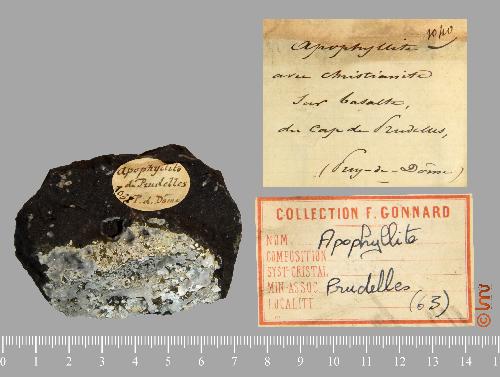 1040
Apophyllite
avec christianite
sur basalte,
du cap de Prudelles,
(Puy-de-Dôme)
Apophyllite
de Prudelles
P. d. Dôme
COLLECTION F. GONNARD
NOM Apophyllite
COMPOSITION
SYST CRISTAL
MIN ASSOC Prudelles
LOCALITÉ (63)
0 1 2 3 4 5 6 7 8 9 10 11 12 13 14 15